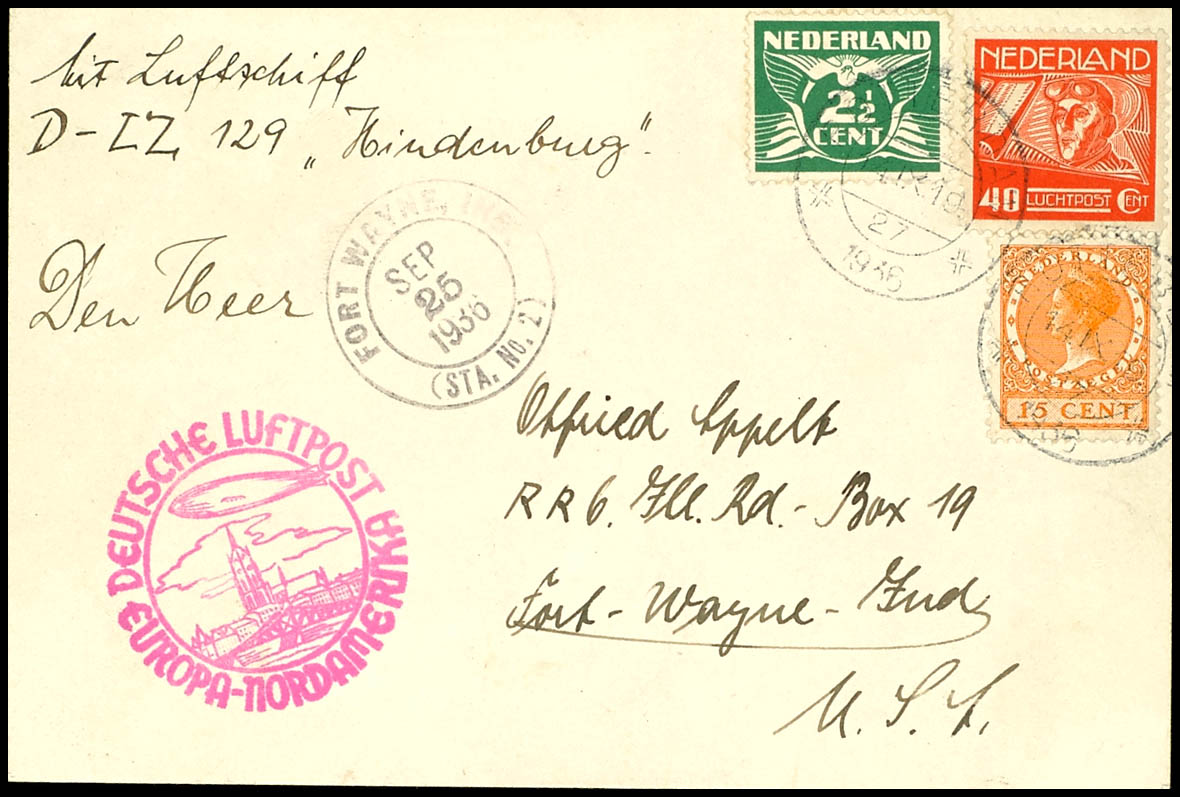 Mit Luftschiff
D-LZ, 129 „Hindenburg".
NEDERLAND
2½
CENT
NEDERLAND
40 LUCHTPOST CENT
27
1936
Den Heer
FORT WAYNE, IND.
SEP
25
1936
(STA. No. 2)
NEDERLAND
POSTZEGEL
15 CENT
DEUTSCHE LUFTPOST
EUROPA-NORDAMERIKA
Otfried Appelt
RR6. Ill. Rd.- Box 19
Fort-Wayne-Ind
U. S. A.